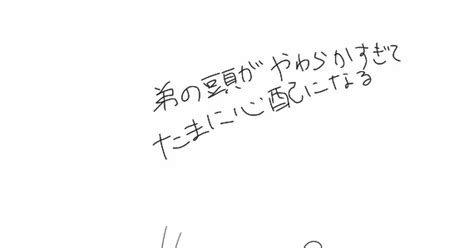 弟の頭がやわらかすぎて
たまに心配になる